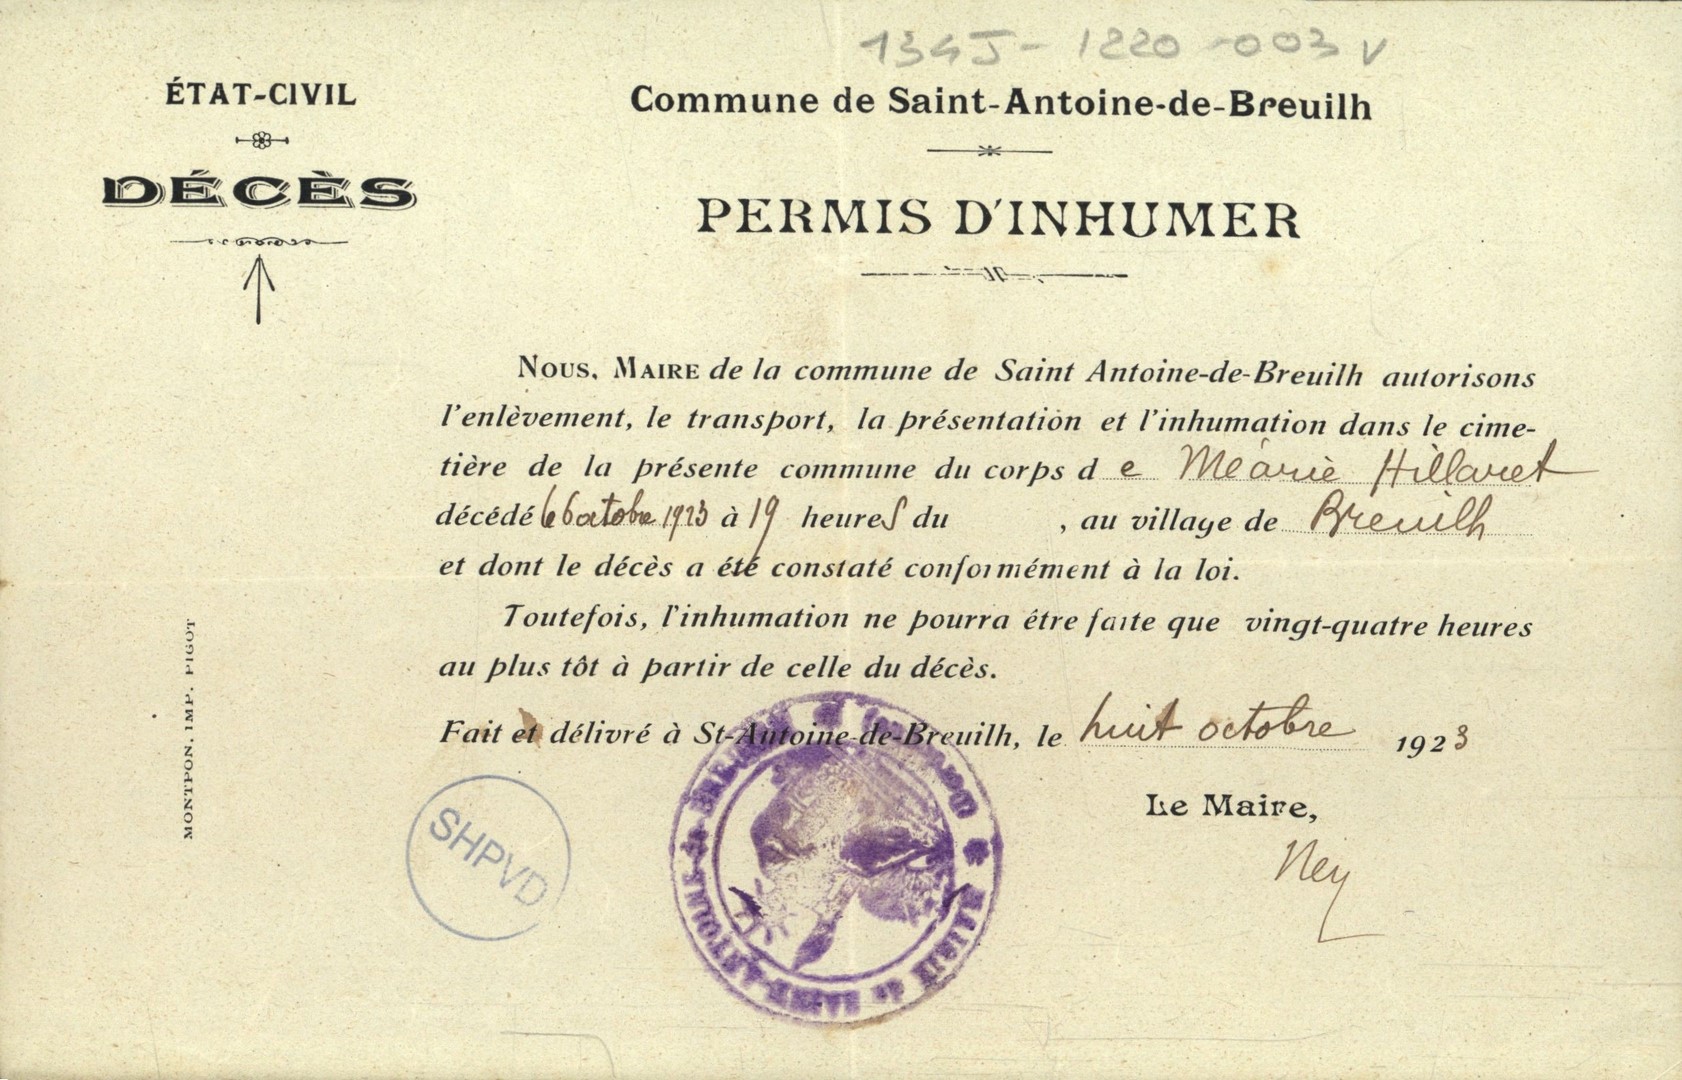 134J-1220-003 v
ÉTAT-CIVIL
DÉCÈS
Commune de Saint-Antoine-de-Breuilh
PERMIS D'INHUMER
NOUS, MAIRE de la commune de Saint Antoine-de-Breuilh autorisons
l'enlèvement, le transport, la présentation et l'inhumation dans le cime-
tière de la présente commune du corps d e Hillaret
décédé le 6 octobre 1923 à 19 heures du , au village de Breuilh
et dont le décès a été constaté conformément à la loi.
Toutefois, l'inhumation ne pourra être faite que vingt-quatre heures
au plus tôt à partir de celle du décès.
Fait et délivré à St-Antoine-de-Breuilh, le huit octobre 1923
Le Maire,
Ney
MONTPON. IMP. PIGOT
SHPVD
MAIRIE de SAINT-ANTOINE-de-BREUILH